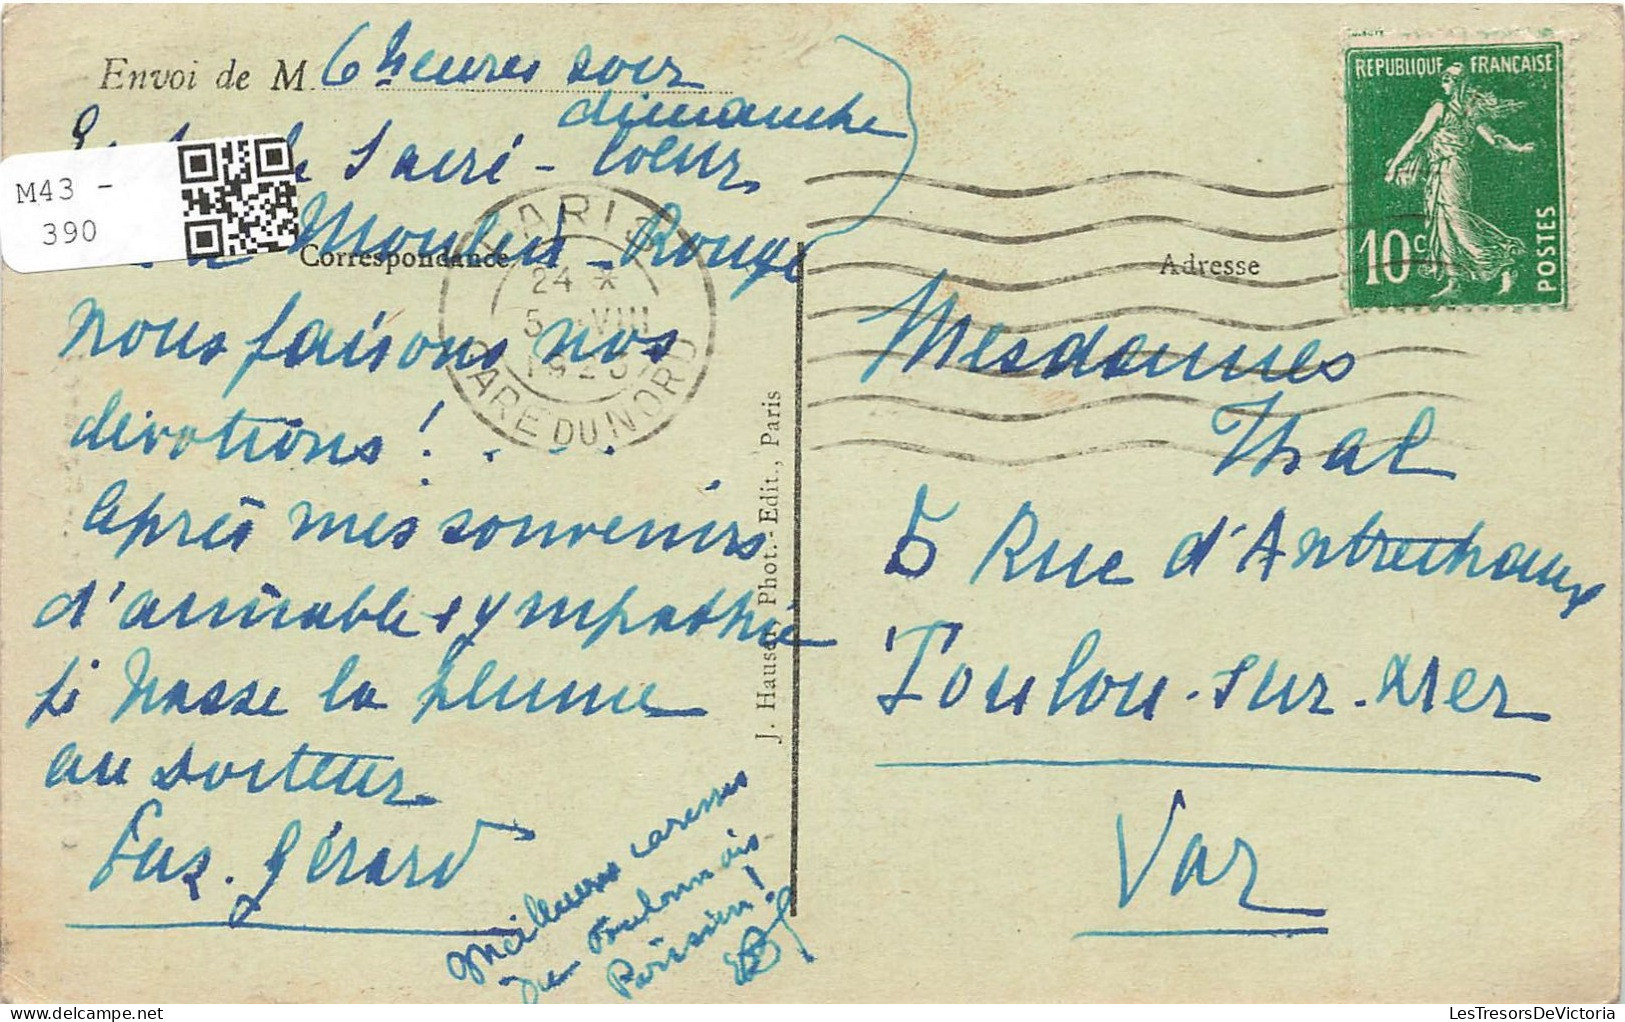 Envoi de M. 6 heures soir
dimanche
Sacré-Coeur
Moulin-Rouge
Correspondance
nous faisons nos
dévotions! . . .
Après mes souvenirs
d'aimable sympathie
je passe la plume
au docteur
Eug. Gérard
Meilleures caresses
du Toulonnais
Parisien!
M43 -
390
PARIS
24 *
5 - VIII
GARE DU NORD
J. Hauser, Phot.-Edit., Paris
REPUBLIQUE FRANÇAISE
10c
POSTES
Adresse
Mesdames
Thal
5 Rue d'Antrechaux
Toulon-sur-Mer
Var
LesTresorsDeVictoria